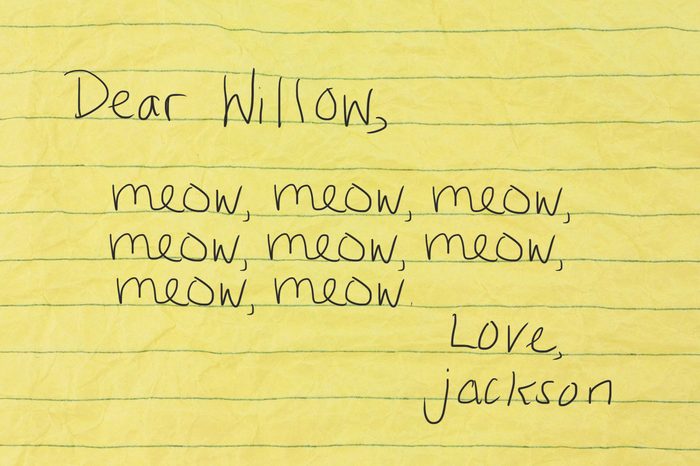 Dear Willow,
meow, meow, meow,
meow, meow, meow,
meow, meow.
Love,
jackson